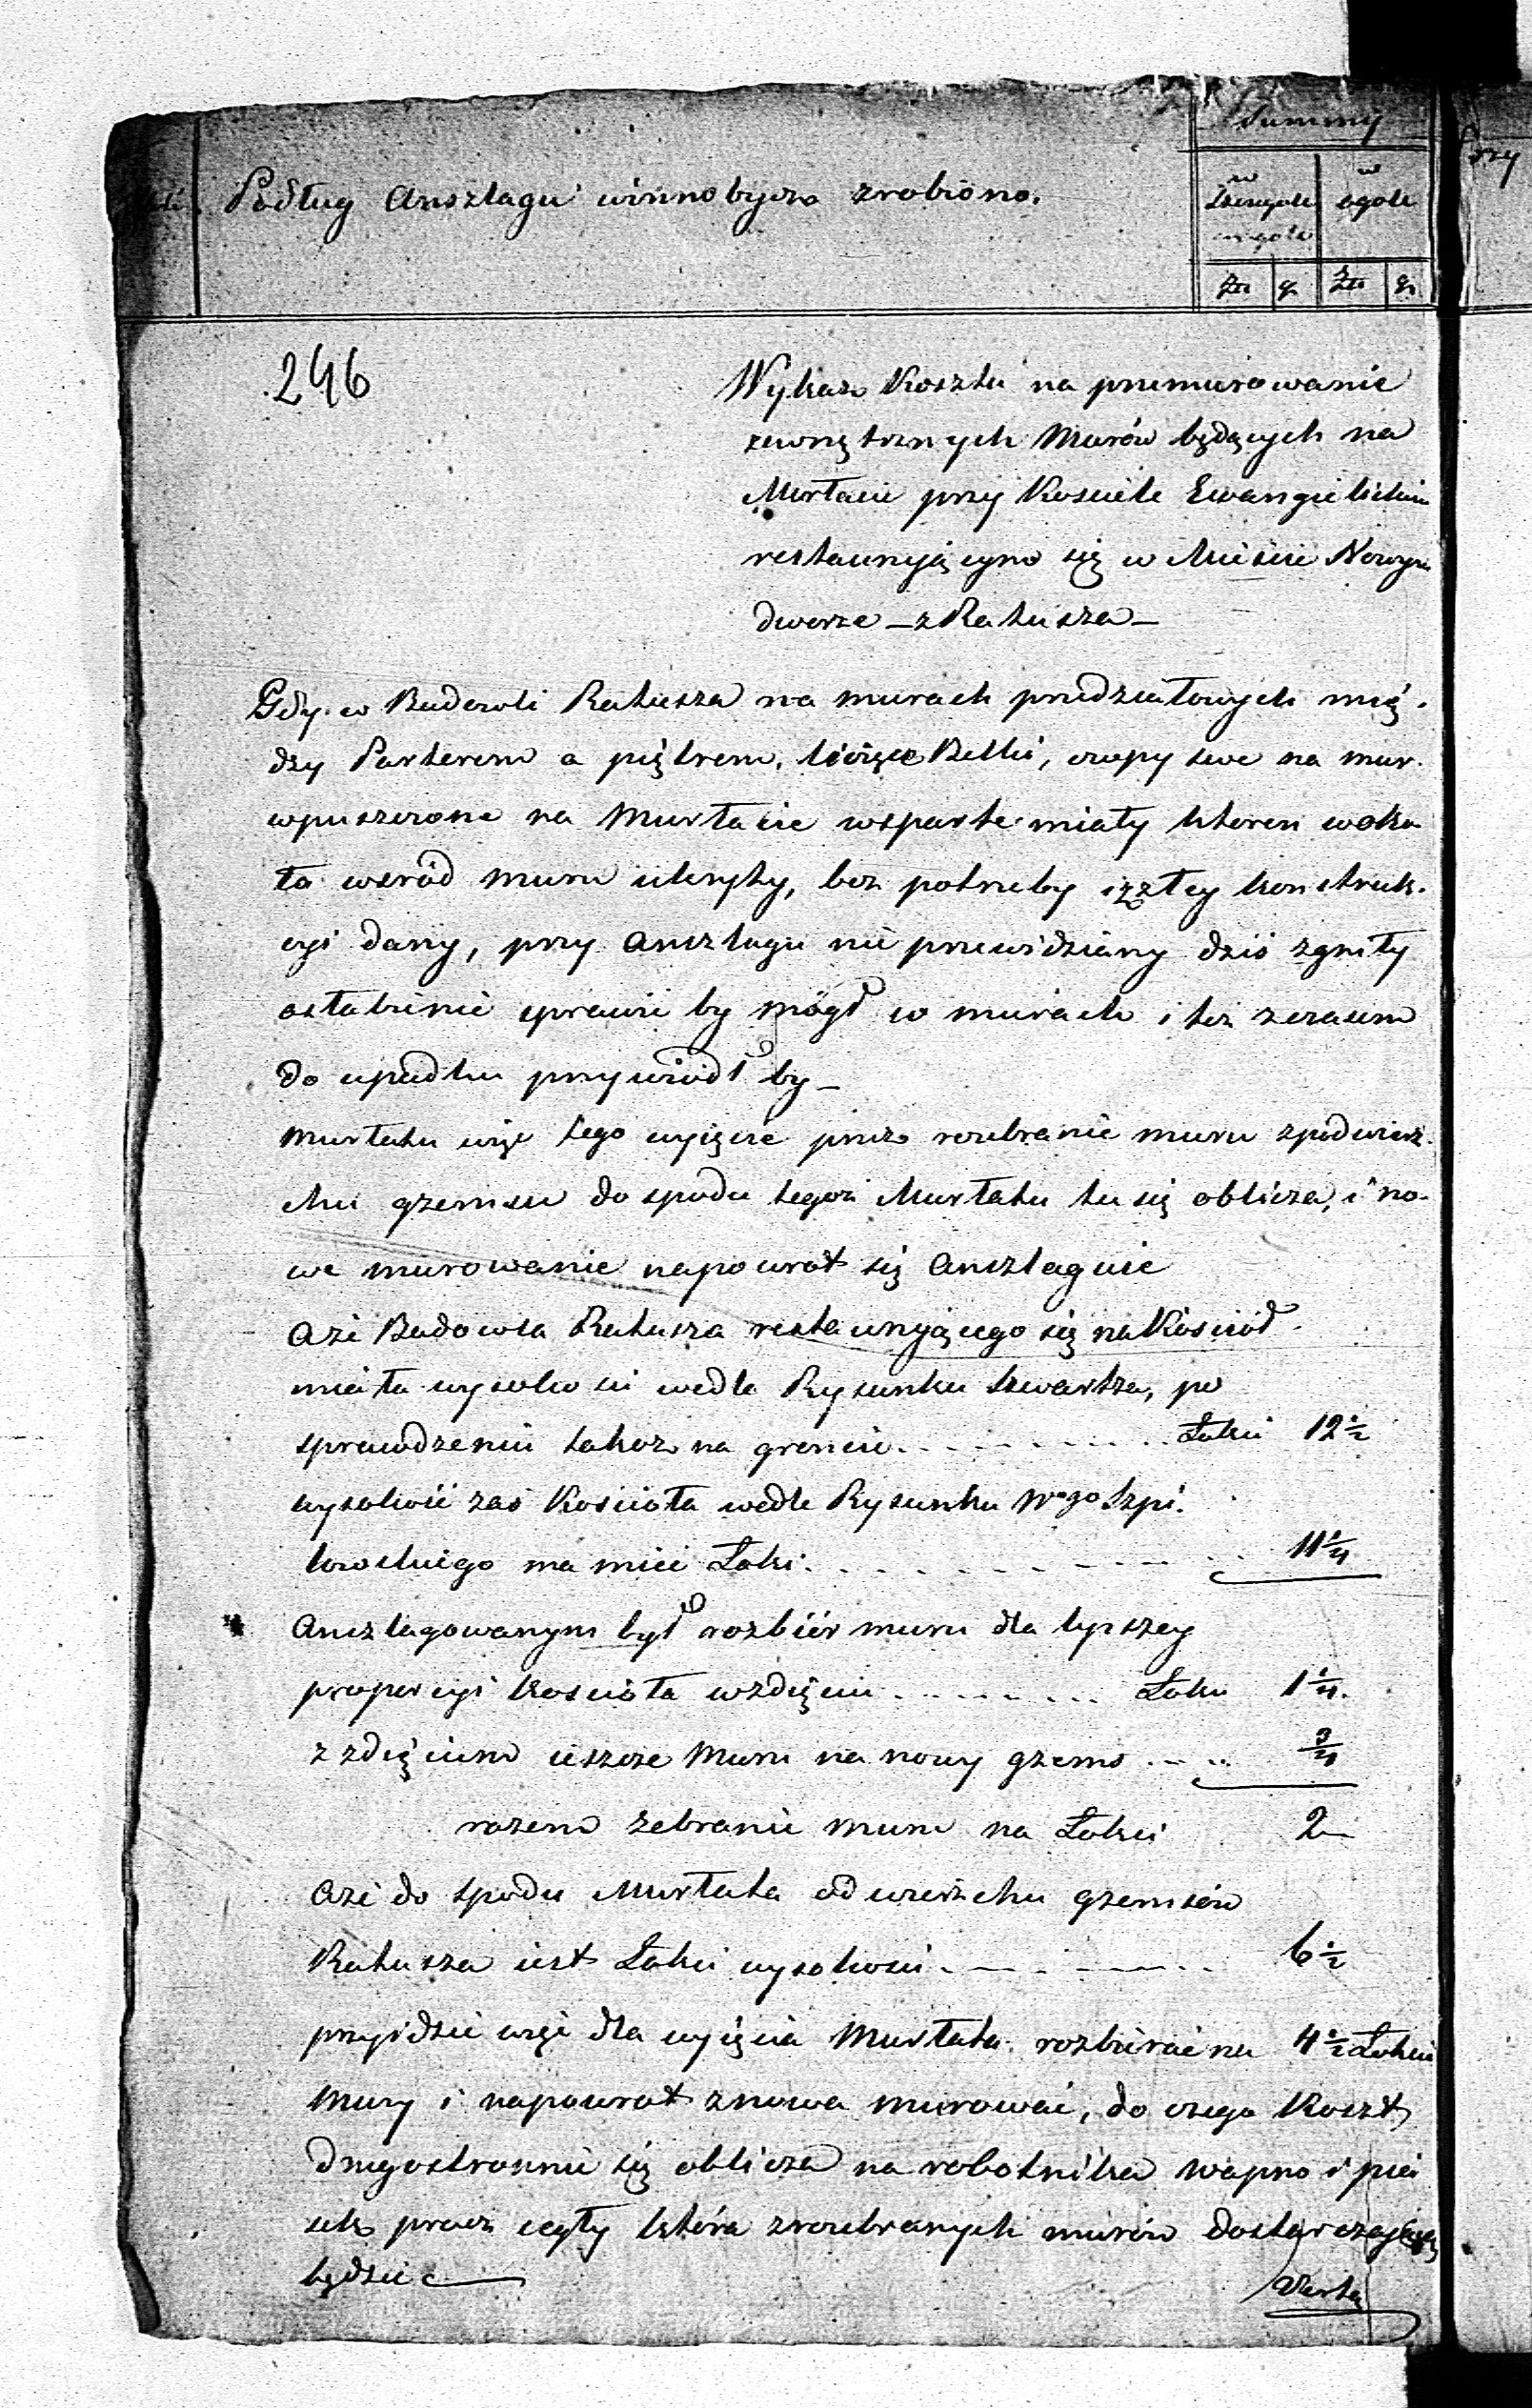 Summy
Podług Anszlagu winno bydź zrobiono.
w w
Szczegole ogole
Złł gr Złł gr
246
Wykaz Kosztu na przemurowanie
zewnętrznych Murów będących na
Murłacie przy Kosciele Ewangielickim
restaurującym się w Miescie Nowym
dworze – z Ratusza –
Gdy w Budowli Ratusza na murach przedziałowych mię-
dzy Parterem a piętrem, leżące Belki, czopy swe na mur
wpuszczone na Murłacie wsparte miały ktoren woko
ło wsród muru ukryty, bez potrzeby i zzłey konstruk-
cyi dany, przy Anszlagu nie przewidziany dziś zgniły
osłabienie sprawić by mógł w murach i też zczasem
do upadku przywiódł by –
Murłatu więc tego wyięcie przez rozebranie muru zpodwierz-
chu gzemsu do spodu tegoż Murłatu tu się oblicza, i no-
we murowanie napowrot się Anszlaguie
Aże Budowla Ratusza restaurującego się na Kościół
miała wysokosci wedle Rysunku Szwartza, po
sprawdzeniu takoż na groncie Łokci 12½
wysokość zaś Kościoła wedle Rysunku Wgo Szpi-
lrowskiego ma mieć Łokci 11¼
Anszlagowanym był rozbiór muru dla lepszey
proporcyi Kościoła wzdięciu Łokci 1¼
z zdięciem ieszcze Muru na nowy gzems ¾
razem zebranie muru na Łokci 2
Aże do spodu Murłata od wierzchu gzemsów
Ratusza iest Łokci wysokosci 6½
przyidzie więc dla wyięcia Murłata rozbierać na 4½ Łokcia
Mury i napowrot znowu murować, do czego Koszt
drugostronnie się oblicza na robotnika wapno i pia
sek procz cegły która zrozebranych murów dostarczającą
będzie